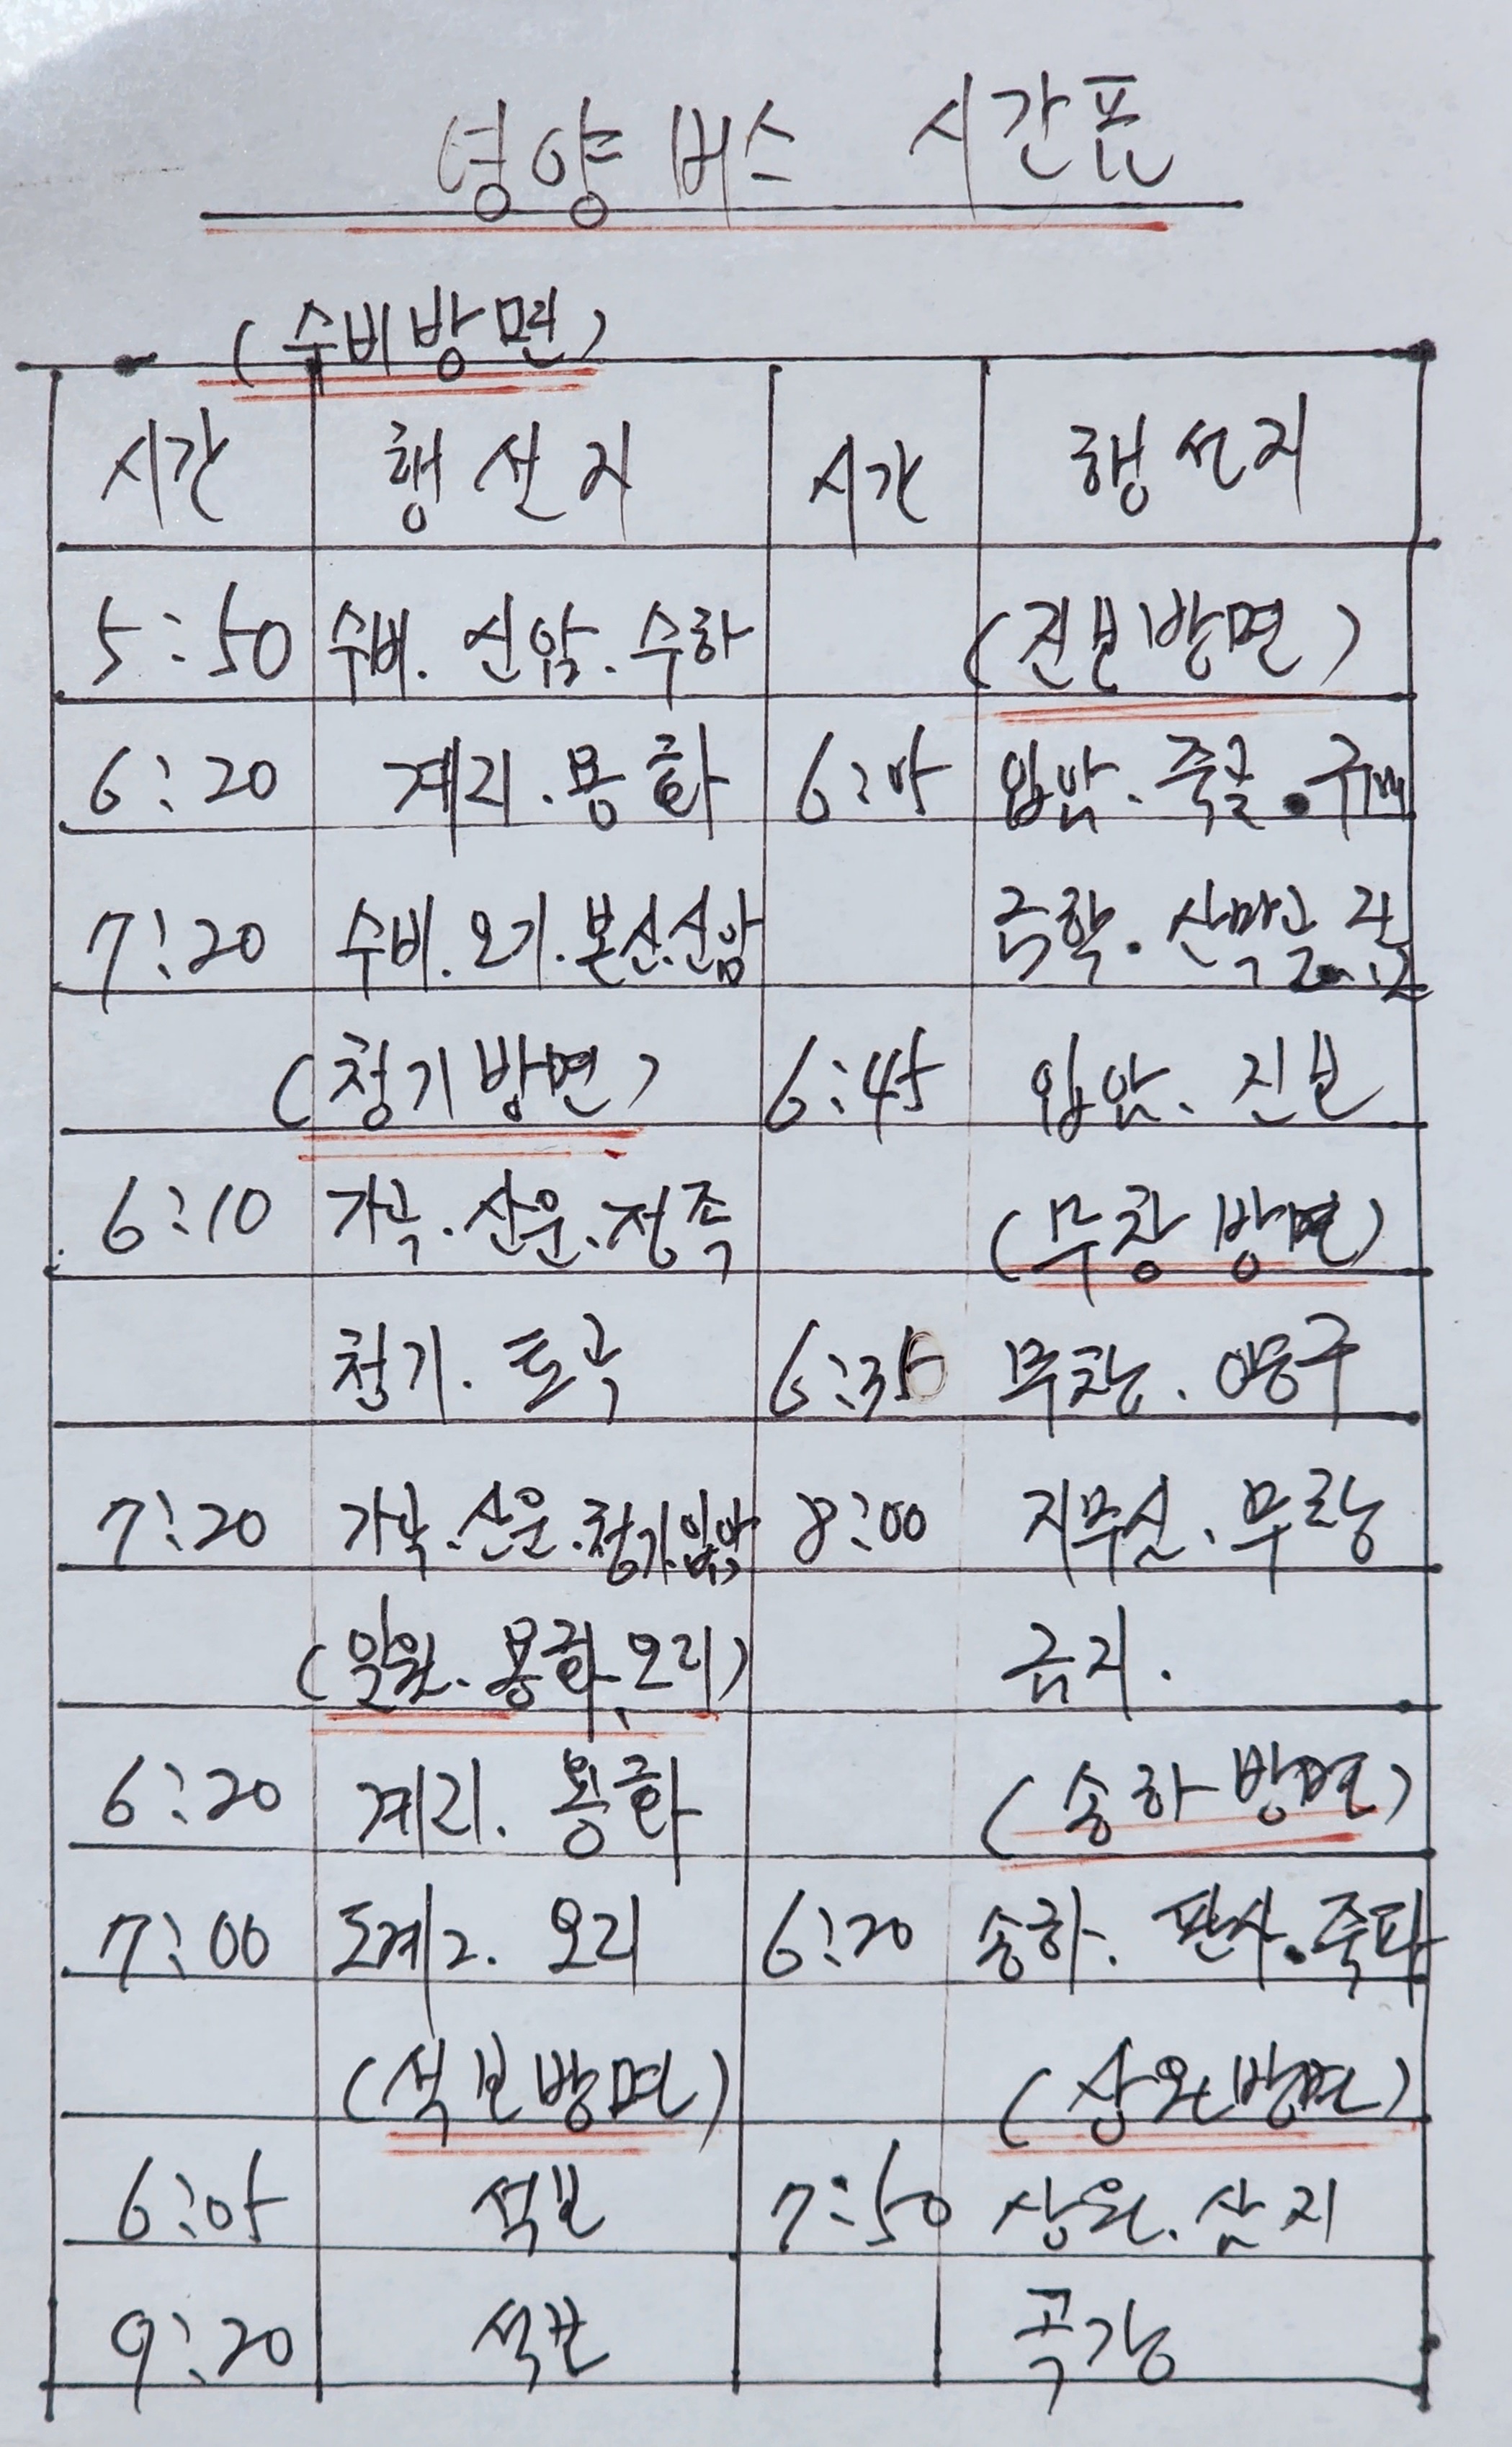 영양 버스 시간표
(수비방면)
시간 행선지 시간 행선지
5:50 수비. 신암. 수하 (진보방면)
6:20 계리. 용화 6:05 입암. 죽글. 구매
7:20 수비. 오기. 본신. 신암 금학. 산막골
(청기방면) 6:45 입암. 진보
6:10 가곡. 산운. 정족 (무창방면)
청기. 토곡 6:35 무창. 양구
7:20 가곡. 산운. 청기. 입암 8:00 지무실. 무창
(일월. 용화. 오리)
6:20 계리. 용화 (송하방면)
7:00 도계2. 오리 6:20 송하. 판사. 죽파
(석보방면) (상원방면)
6:05 석보 7:50 상원. 삼지
9:20 석보 곡강